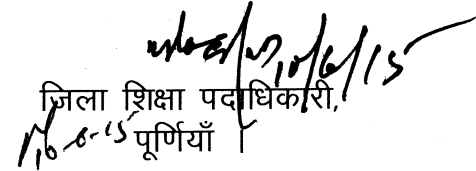 10/6/15
जिला शिक्षा पदाधिकारी,
10-6-15 पूर्णियाँ ।